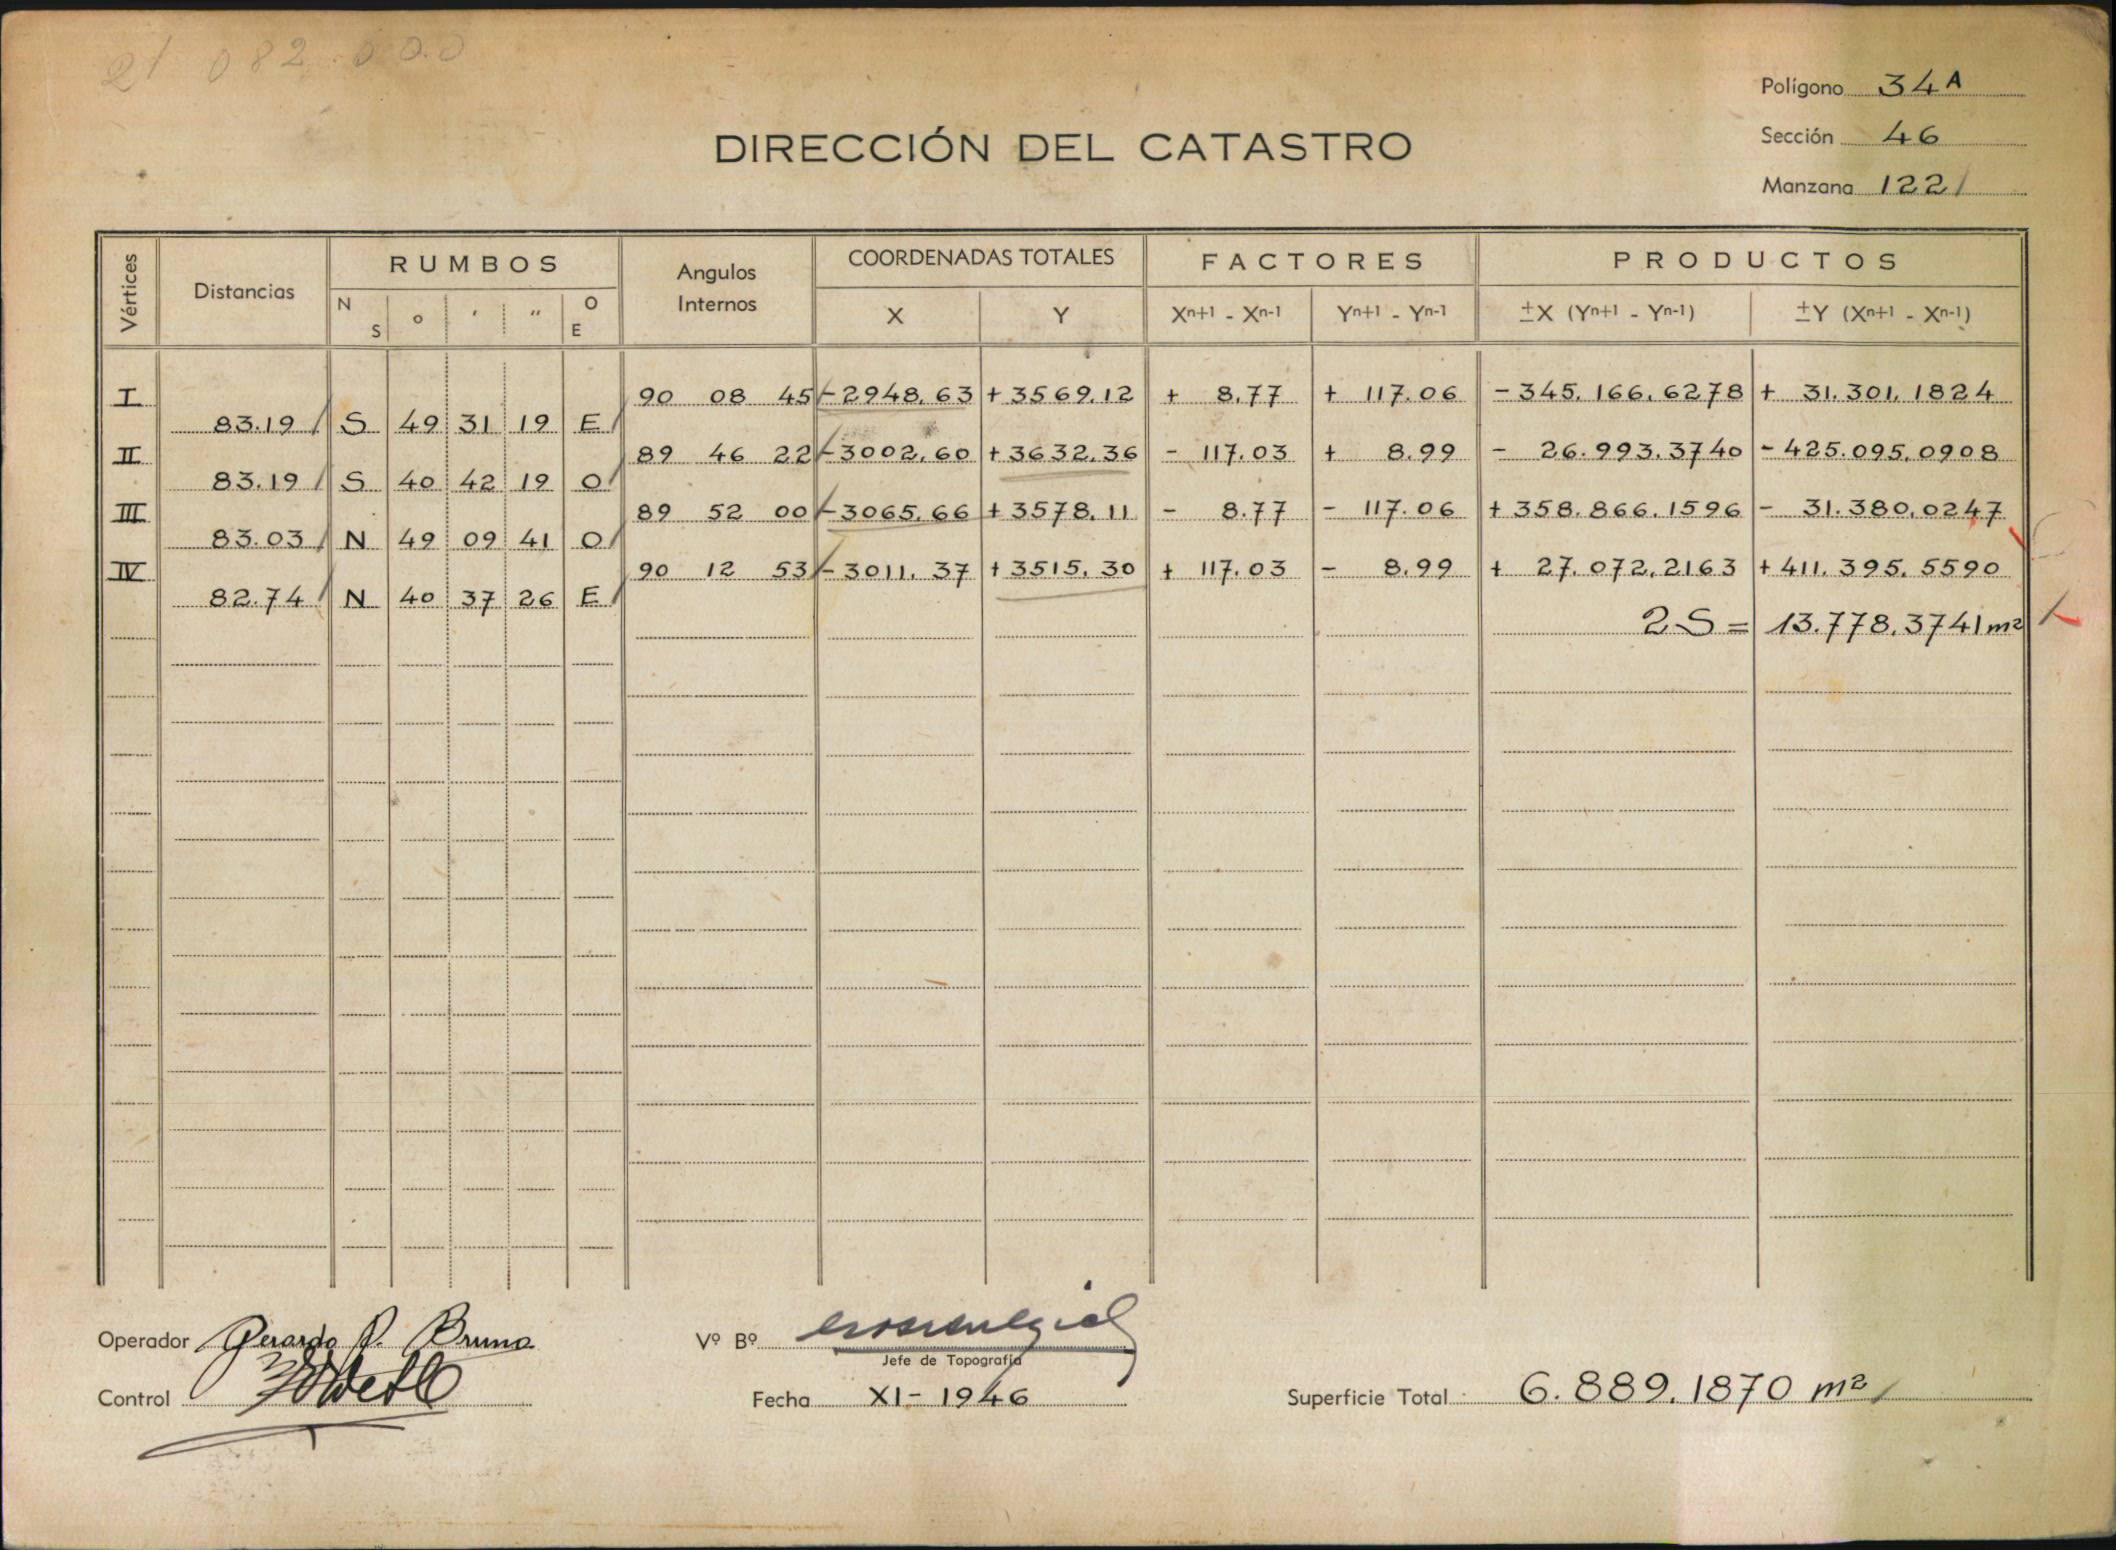 21 082.000
Polígono 34A
DIRECCIÓN DEL CATASTRO
Sección 46
Manzana 122
Vértices Distancias RUMBOS Angulos Internos COORDENADAS TOTALES FACTORES PRODUCTOS
N S o ' " O E X Y Xn+1 - Xn-1 Yn+1 - Yn-1 ±X (Yn+1 - Yn-1) ±Y (Xn+1 - Xn-1)
I 90 08 45 -2948,63 +3569,12 + 8,77 + 117.06 -345.166,6278 + 31.301,1824
83.19 S 49 31 19 E
II 89 46 22 -3002,60 +3632,36 - 117,03 + 8.99 - 26.993,3740 -425.095,0908
83.19 S 40 42 19 O
III 89 52 00 -3065,66 +3578,11 - 8.77 - 117.06 +358.866,1596 - 31.380,0247
83.03 N 49 09 41 O
IV 90 12 53 -3011,37 +3515,30 + 117.03 - 8.99 + 27.072,2163 +411.395,5590
82.74 N 40 37 26 E
2S = 13.778,3741 m²
Operador Gerardo P. Bruno
Vº Bº
Jefe de Topografía
Control
Fecha XI - 1946
Superficie Total 6.889,1870 m²